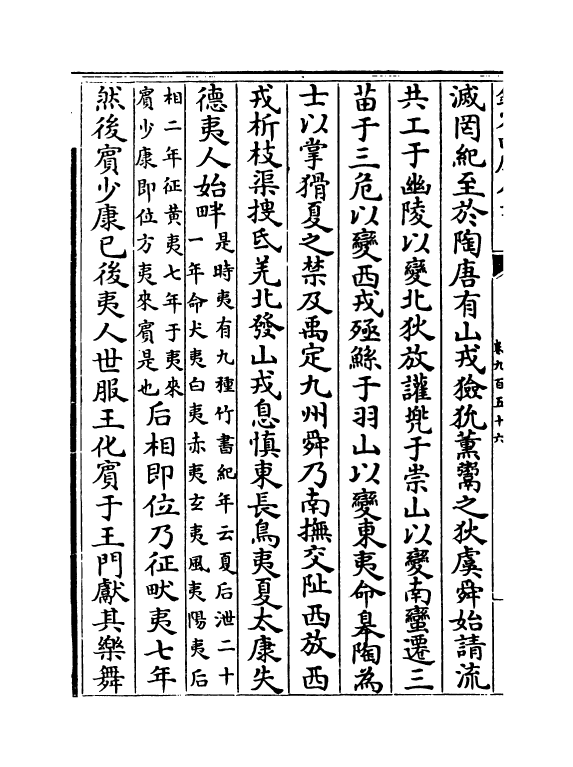 卷九百五十六
滅罔紀至於陶唐有山戎獫狁薫鬻之狄虞舜始請流
共工于幽陵以變北狄放讙兜于崇山以變南蠻遷三
苗于三危以變西戎殛鯀于羽山以變東夷命皋陶為
士以掌猾夏之禁及禹定九州舜乃南撫交阯西放西
戎析枝渠搜氐羌北發山戎息慎東長鳥夷夏太康失
德夷人始畔
是時夷有九種竹書紀年云夏后泄二十
一年命犬夷白夷赤夷玄夷風夷陽夷后
相二年征黄夷七年于夷來
賔少康即位方夷來賔是也
后相即位乃征畎夷七年
然後賔少康已後夷人世服王化賔于王門獻其樂舞